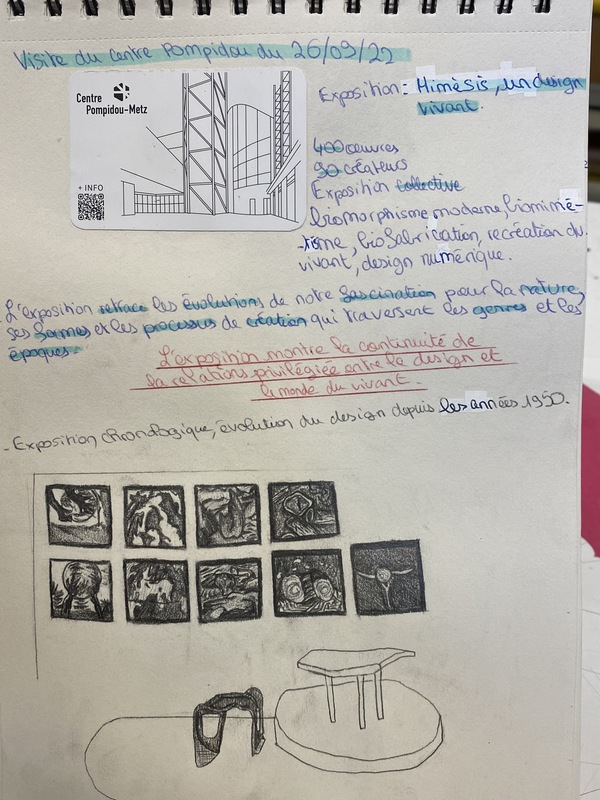 Visite du centre Pompidou du 26/09/22
Centre
Pompidou-Metz
+ INFO
Exposition: Mimèsis, un design
vivant.
400 œuvres
90 créateurs
Exposition collective
biomorphisme moderne, biomimé-
-tisme, biofabrication, recréation du
vivant, design numérique.
L'exposition retrace les évolutions de notre fascination pour la nature,
ses formes et les processus de création qui traversent les genres et les
époques.
L'exposition montre la continuité de
la relations privilégiée entre le design et
le monde du vivant.
- Exposition chronologique, évolution du design depuis les années 1950.